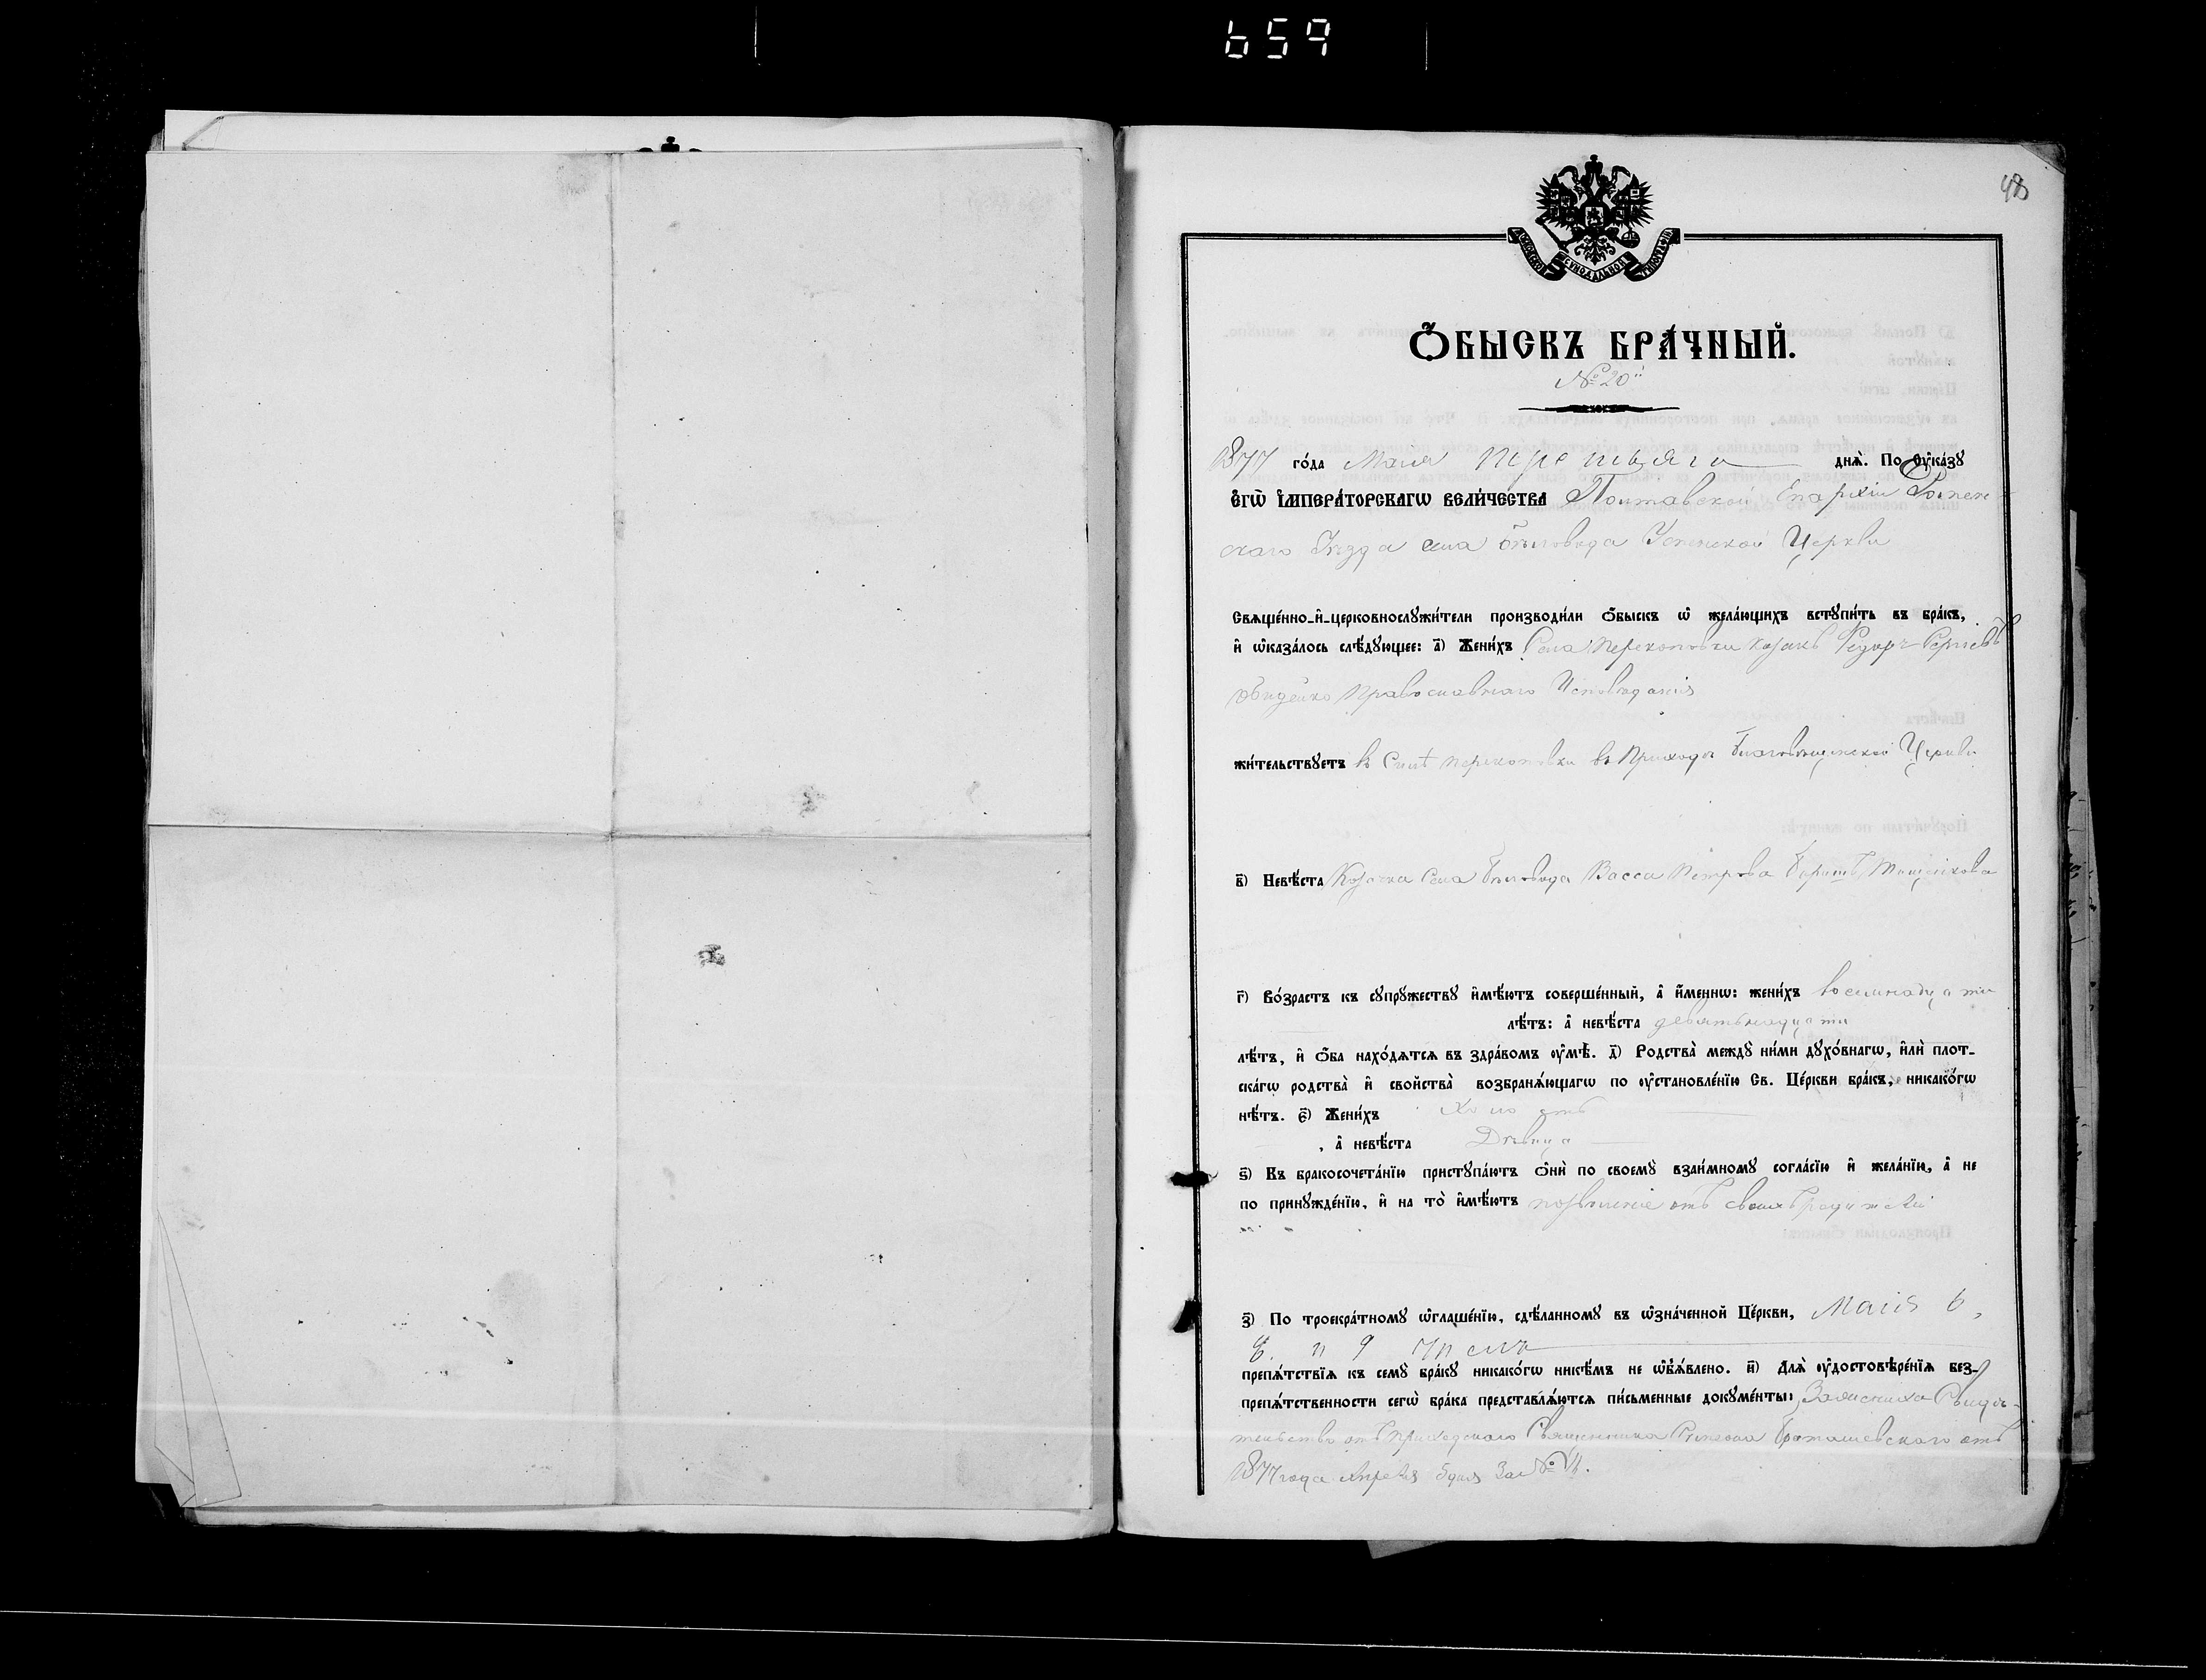 659
48
КІЕВСКОЙ СУНОДАЛЬНОЙ ТИПОГРАФІИ
Ѻ҆БЫСКЪ БРА́ЧНЫЙ.
№ 20й
1877 го́да Маія третьяго днѧ̀. По ᲂу҆ка́зꙋ
Є҆ГѠ̀ І҆МПЕРА́ТОРСКАГѠ ВЕЛИ́ЧЕСТВА Полтавской Епархіи Ромен-
скаго Уѣзда села Бѣловода Успенской Церкви
Свѧще́нно-и҆-церковнослꙋжи́тели производи́ли ѻ҆́быскъ ѡ҆ жела́ющихъ встꙋпи́ть въ бра́къ,
и҆ ѡ҆каза́лось слѣ́дꙋющее: а҃) Жени́хъ Села Перекоповки козакъ Федоръ Сергѣевъ
Православнаго Исповѣданія
жи́тельствꙋетъ въ Селѣ Перекоповки въ Приходѣ Благовѣщенской Церкви
в҃) Невѣ́ста Козачка Села Бѣловода Васса Петрова
г҃) Во́зрастъ къ сꙋпрꙋ́жествꙋ и҆мѣ́ютъ соверше́нный, а҆ и҆́меннѡ: жени́хъ восемнадцати
лѣ́тъ: а҆ невѣ́ста девятьнадцати
лѣ́тъ, и҆ ѻ҆́ба нахо́дѧтсѧ въ здра́вомъ ᲂу҆мѣ̀. д҃) Родства̀ междꙋ̀ ни́ми дꙋхо́внагѡ, и҆лѝ плот-
ска́гѡ родства̀ и҆ свойства̀ возбранѧ́ющагѡ по ᲂу҆становле́нїю Св. Це́ркви бра́къ, никако́гѡ
нѣ́тъ. є҃) Жени́хъ Холостъ
, а҆ невѣ́ста Дѣвица
ѕ҃) Въ бракосочета́нїю пристꙋпа́ютъ ѻ҆нѝ по своемꙋ̀ взаи́мномꙋ согла́сїю и҆ жела́нїю, а҆ не
по принꙋжде́нїю, и҆ на то̀ и҆мѣ́ютъ позволеніе отъ своихъ родителей
з҃) По троекра́тномꙋ ѡ҆глаше́нїю, сдѣ́ланномꙋ въ ѡ҆зна́ченной Це́ркви, Маія 6,
8. и 9 числа
препѧ́тствїѧ къ семꙋ̀ бра́кꙋ никако́гѡ никѣ́мъ не ѡ҆б̾ѧ́влено. и҃) Длѧ̀ ᲂу҆достовѣре́нїѧ без-
препѧ́тственности сегѡ̀ бра́ка представлѧ́ютсѧ пи́сьменные докꙋме́нты: Свидѣ-
тельство отъ приходскаго Священника Симеона отъ
1877 года Апрѣля 5 дня За №